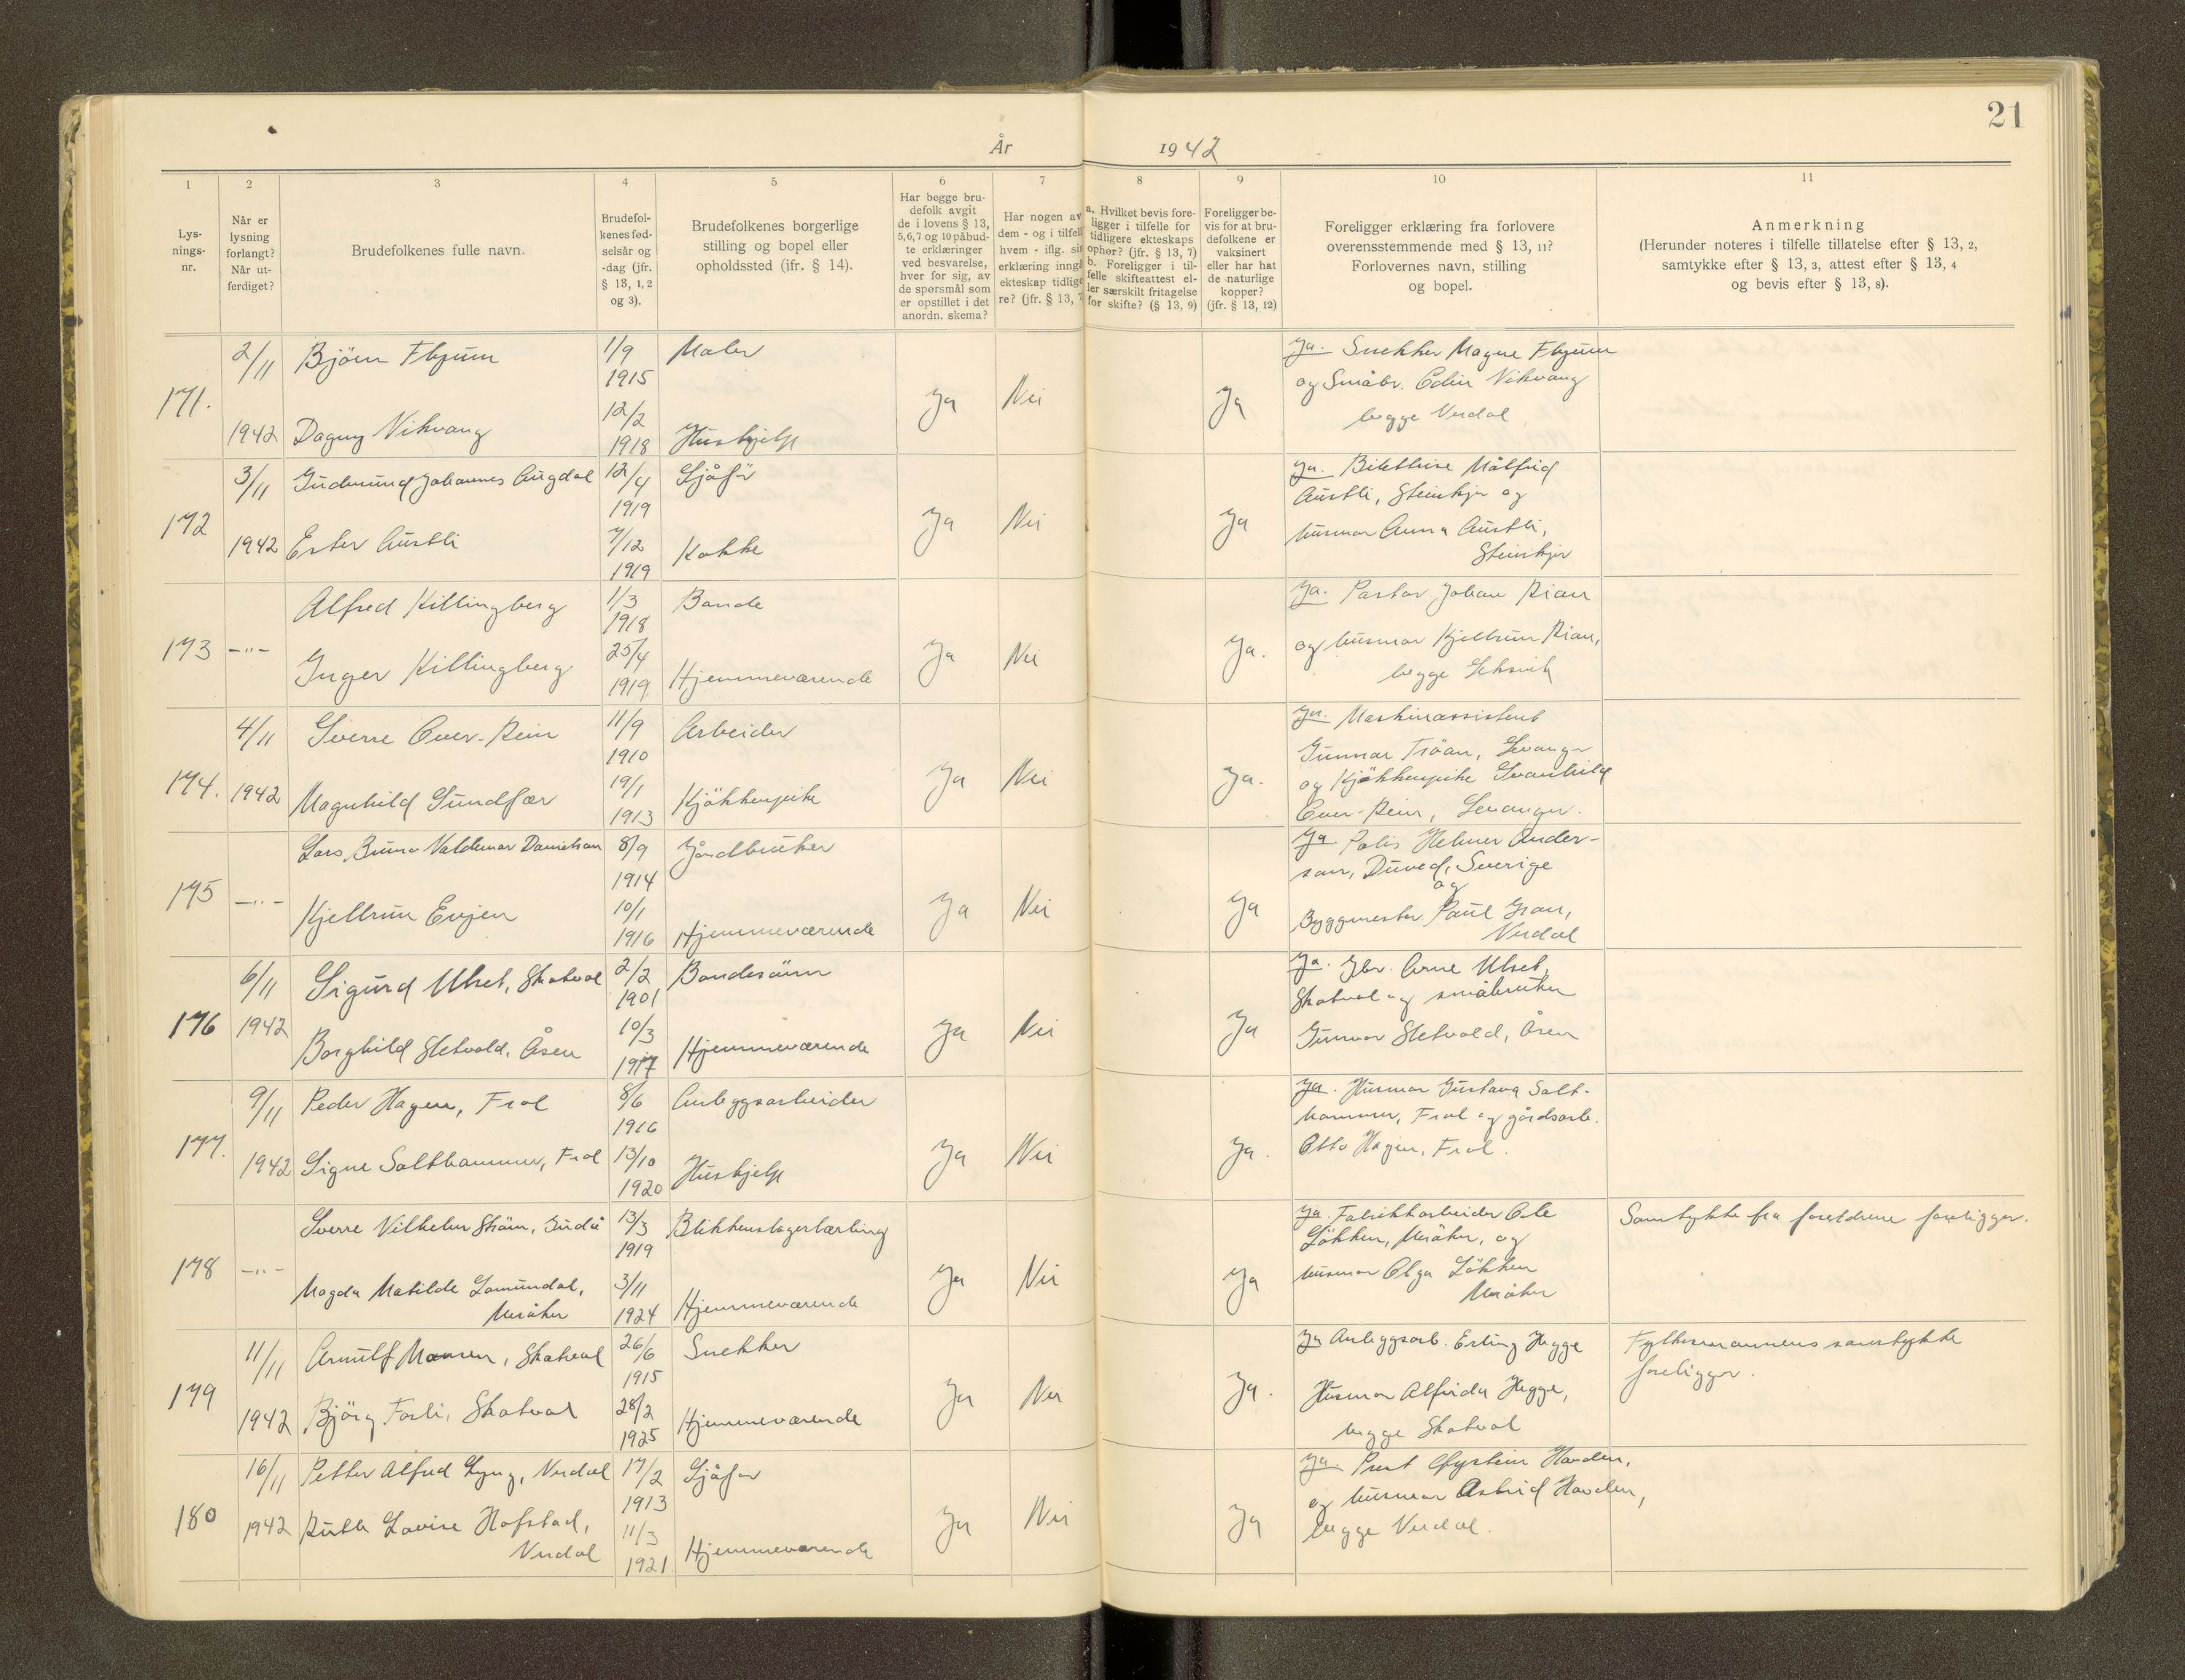 21
År 1942
1
2
3
4
5
6
7
8
9
10
11
Lys-
nings-
nr.
Når er
lysning
forlangt?
Når ut-
ferdiget?
Brudefolkenes fulle navn.
Brudefol-
kenes fød-
selsår og
-dag (jfr.
§ 13, 1, 2
og 3).
Brudefolkenes borgerlige
stilling og bopel eller
opholdssted (ifr. § 14).
Har begge bru-
defolk avgit
de i lovens § 13,
5,6,7 og 10 påbud-
te erklæringer
ved besvarelse,
hver for sig, av
de spørsmål som
er opstillet i det
anordn. skema?
Har nogen av
dem - og i tilfell
hvem - iflg. sin
erklæring inngå
ekteskap tidlige
re? (jfr. § 13, 7
a. Hvilket bevis fore-
ligger i tilfelle for
tidligere ekteskaps
ophør? (jfr. § 13, 7)
b. Foreligger i til-
felle skifteattest el-
ler særskilt fritagelse
for skifte? (§ 13, 9)
Foreligger be-
vis for at bru-
defolkene er
vaksinert
eller har hat
de naturlige
kopper?
(jfr. § 13, 12)
Foreligger erklæring fra forlovere
overensstemmende med § 13, 11?
Forlovernes navn, stilling
og bopel.
Anmerkning
(Herunder noteres i tilfelle tillatelse efter § 13, 2,
samtykke efter § 13, 3, attest efter § 13, 4
og bevis efter § 13, 8).
171.
2/11 1942
Björn Flyum
1/9 1915
Maler
Dagny Vikvang
12/2 1918
Hushjelp
Ja
Nei
Ja
Ja. Snekker Magne Flyum
og Småbr. Edin Vikvang
begge Verdal
172
3/11 1942
Gudmund Johannes Augdal
12/4 1919
Sjåfør
Ester Austli
7/12 1919
Kokke
Ja
Nei
Ja
Ja. Målfrid
Austli, Steinkjer og
husmor Anna Austli,
Steinkjer
173
-"-
Alfred Killingberg
1/3 1918
Bonde
Inger Killingberg
25/4 1919
Hjemmeværende
Ja
Nei
Ja.
Ja. Pastor Johan Rian
og husmor Kjellrun Rian,
begge Leksvik
174.
4/11 1942
Sverre Over-Rein
11/9 1910
Arbeider
Magnhild Sundfær
19/1 1913
Kjökkenpike
Ja
Nei
Ja.
Ja. Maskinassistent
Gunnar Tröan, Levanger
og Kjökkenpike Svanhild
Over-Rein, Levanger.
175
-"-
Lars Bruno Valdemar Danielsson
8/9 1914
Jordbruker
Kjellrun Evjen
10/1 1916
Hjemmeværende
Ja
Nei
Ja
Ja Polis Helmer Ander-
son, Duved, Sverige
og
Byggmester Paul Gran,
Verdal
176
6/11 1942
Sigurd Ulset, Skatval
2/2 1901
Bondesönn
Borghild Sletvold, Åsen
10/3 1917
Hjemmeværende
Ja
Nei
Ja
Ja. Gbr. Arne Ulset,
Skatval og småbruker
Gunnar Sletvold, Åsen
177.
9/11 1942
Peder Hagen, Frol
8/6 1916
Anleggsarbeider
Signe Salthammer, Frol
13/10 1920
Hushjelp
Ja
Nei
Ja.
Ja. Husmor Gustava Salt-
hammer, Frol og gårdsarb.
Otto Hagen, Frol.
178
-"-
Sverre Vilhelm Ström, Gudå
13/3 1919
Blikkenslagerlærling
Magda Matilde Lomundal,
Meråker
3/11 1924
Hjemmeværende
Ja
Nei
Ja
Ja. Fabrikkarbeider Ole
Løkken, Meråker, og
husmor Olga Løkken
Meråker
Samtykke fra foreldrene foreligger.
179
11/11 1942
Arnulf Monsen, Skatval
26/6 1915
Snekker
Björg Forli, Skatval
28/2 1925
Hjemmeværende
Ja
Nei
Ja.
Ja Anleggsarb. Erling Hegge
Husmor Alfrida Hegge,
begge Skatval
Fylkesmannens samtykke
foreligger.
180
16/11 1942
Petter Alfred Lyng, Verdal
17/2 1913
Sjåfør
Ruth Lovise Hofstad,
Verdal
11/3 1921
Hjemmeværende
Ja
Nei
Ja
Ja. Prest Øystein Hovden,
og husmor Astrid Hovden,
begge Verdal.